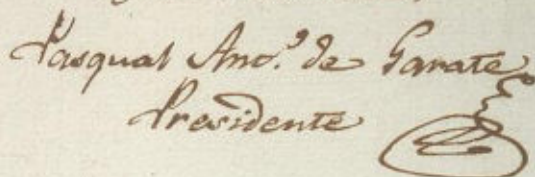 Pasqual Ant.º de Garate
Presidente